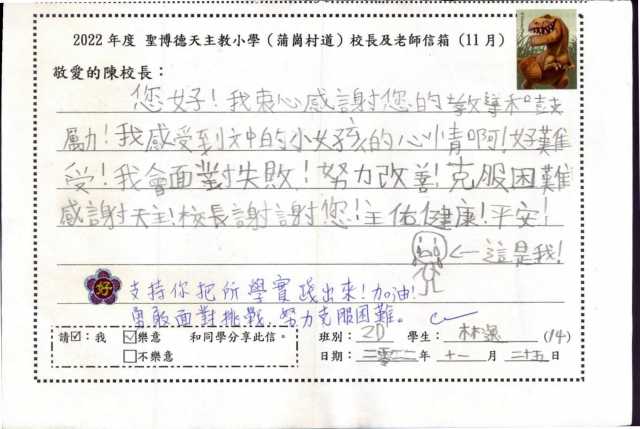 2022 年度 聖博德天主教小學(蒲崗村道)校長及老師信箱(11月)
敬愛的陳校長:
您好!我衷心感謝您的教導和鼓
勵!我感受到文中的小女孩的心情啊!好難
受!我會面對失敗!努力改善!克服困難
感謝天主!校長謝謝您!主佑健康!平安!
←這是我!
好 支持你把所學實踐出來!加油!
勇敢面對挑戰,努力克服困難。
請☑:我 ☑樂意 和同學分享此信。 班別:2D 學生:林 (14)
□不樂意 日期:二零二二年 十一 月 二十五 日